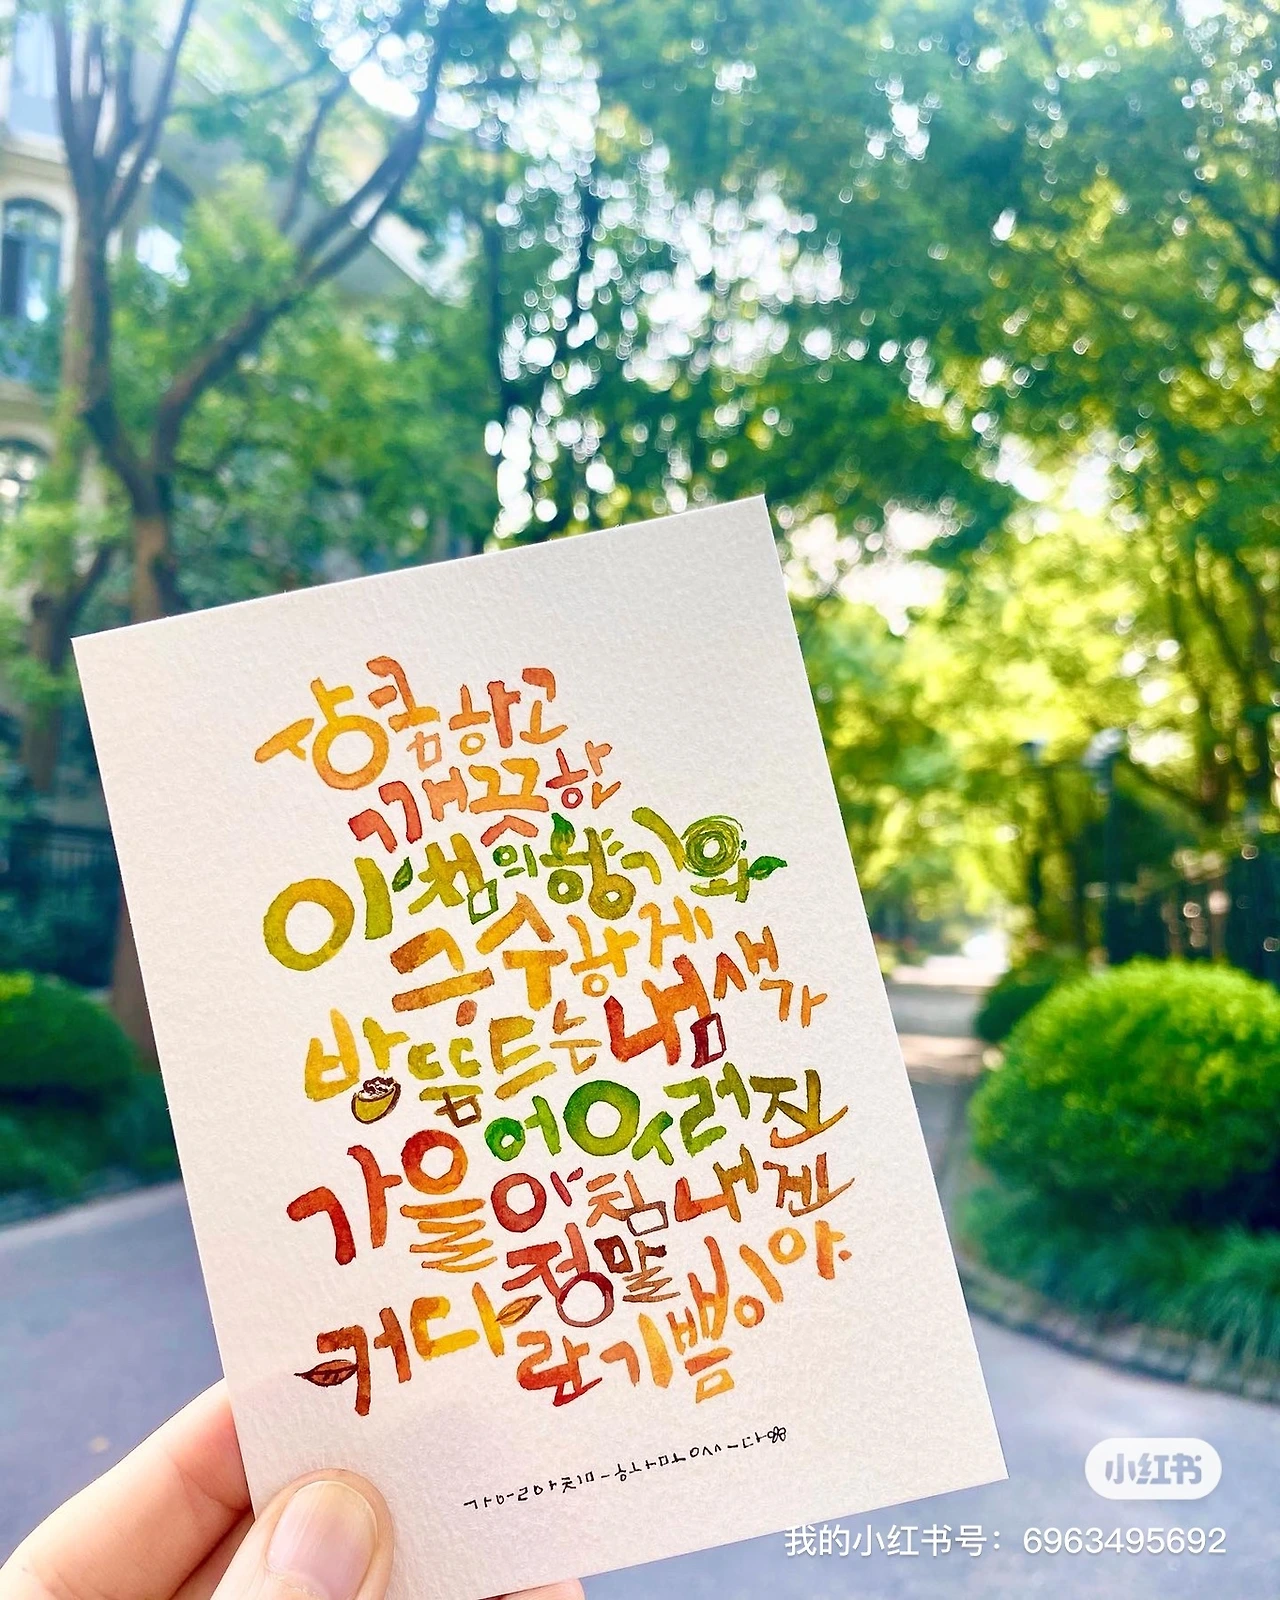 상큼하고
깨끗한
아침의 향기와
구수하게
밤 뜸드는 냄새가
어우러진
가을 아침 내겐
정말
커다란 기쁨이야
가을아침-
小红书
我的小红书号：6963495692